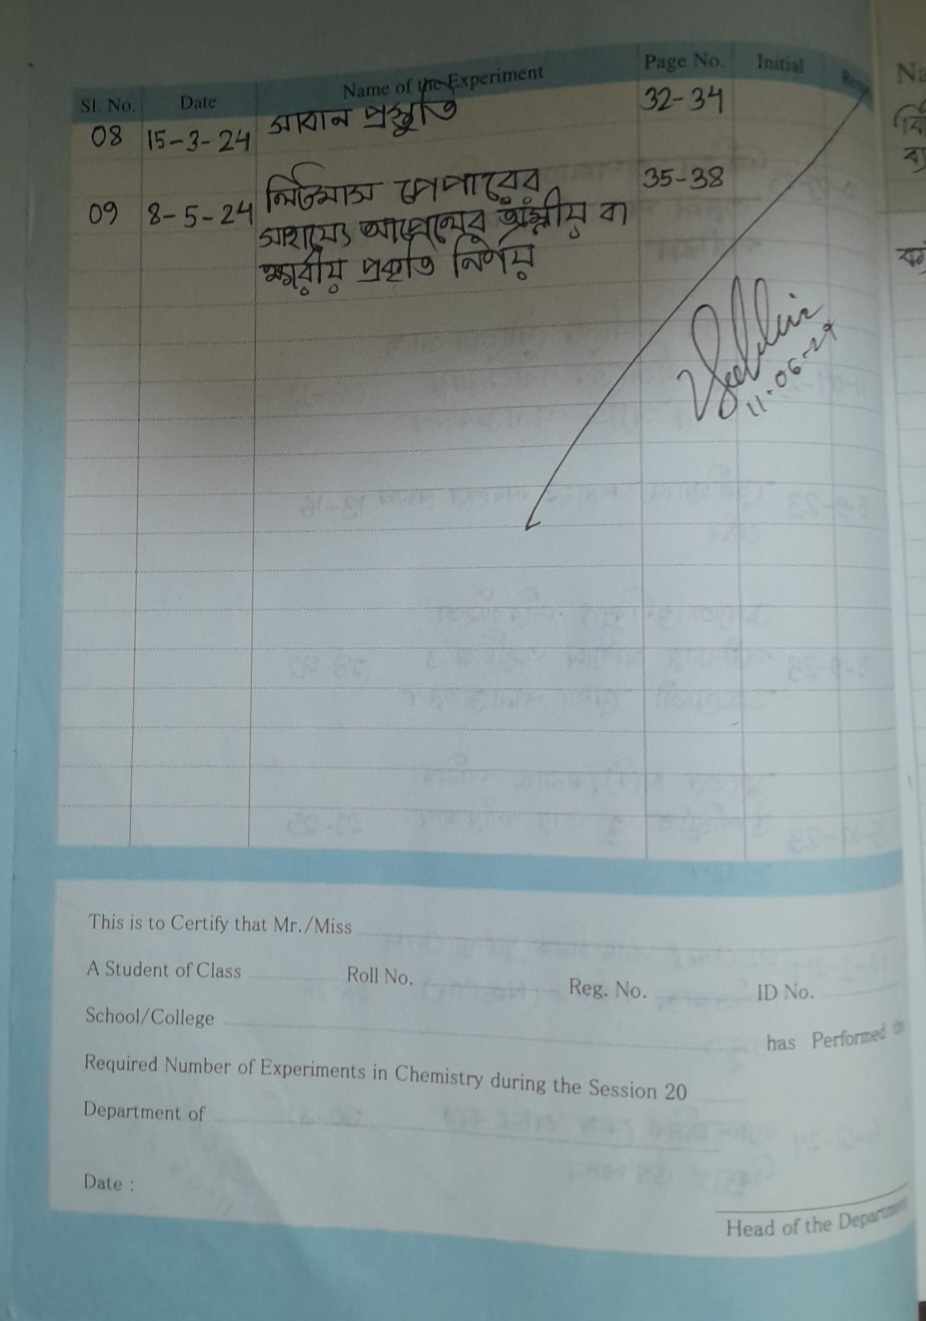 Sl. No. Date Name of the Experiment Page No. Initial
08 15-3-24 সাবান প্রস্তুতি 32-34
09 8-5-24 লিটমাস পেপারের 35-38
সাহায্যে আপেলের অম্লীয় বা
ক্ষারীয় প্রকৃতি নির্ণয়
11-06-24
This is to Certify that Mr./Miss
A Student of Class Roll No. Reg. No. ID No.
School/College has Performed
Required Number of Experiments in Chemistry during the Session 20
Department of
Date :
Head of the Department